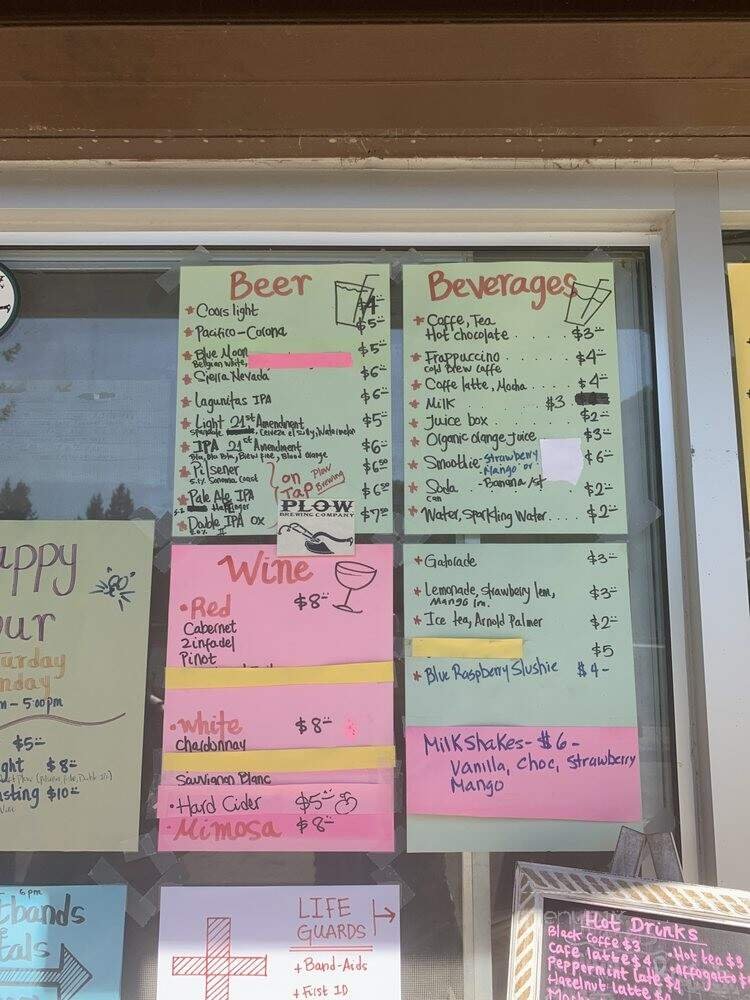 Beer
Coors light
$5=
Pacifico-Corona
Blue Moon $5=
Belgian white,
Sierra Nevada $6=
Lagunitas IPA $6=
Light 21st Amendment $5=
Sparkale Cerveza el Sully, Watermelon
IPA 21st Amendment $6=
Bla, Bla Bla, Brew Free, Blood Orange
Pilsener $6=50
5.1% Sonoma Coast
on Tap
Plow Brewing
Pale Ale IPA $6=50
Double IPA OX $7=50
PLOW
BREWING COMPANY
Beverages
Coffe, Tea
Hot chocolate $3=
Frappuccino $4=
cold Brew caffe
Caffe latte, Mocha $4=
Milk $3
Juice box $2=
Organic orange juice $3=
Smoothie- Strawberry $6=
Mango or
- Banana /st
Soda $2=
can
Water, Sparkling Water $2=
Wine
Red $8=
Cabernet
Zinfadel
Pinot
white $8=
chardonnay
Sauvignon Blanc
Hard Cider $5=
Mimosa $8=
Gatorade $3=
Lemonade, strawberry lem, $3=
Mango lm.
Ice tea, Arnold Palmer $2=
$5
Blue Raspberry Slushie $4-
Milkshakes- $6-
Vanilla, Choc, Strawberry
Mango
appy
our
urday
nday
m - 5:00pm
$5=
ght $8=
sting $10=
6pm
tbands
tals
LIFE
GUARDS
+ Band-Aids
+ First ID
Hot Drinks
Black Coffe $3
Cafe latte $4
Peppermint late $4
Hazelnut latte $
Hot tea $3
Affogatto $